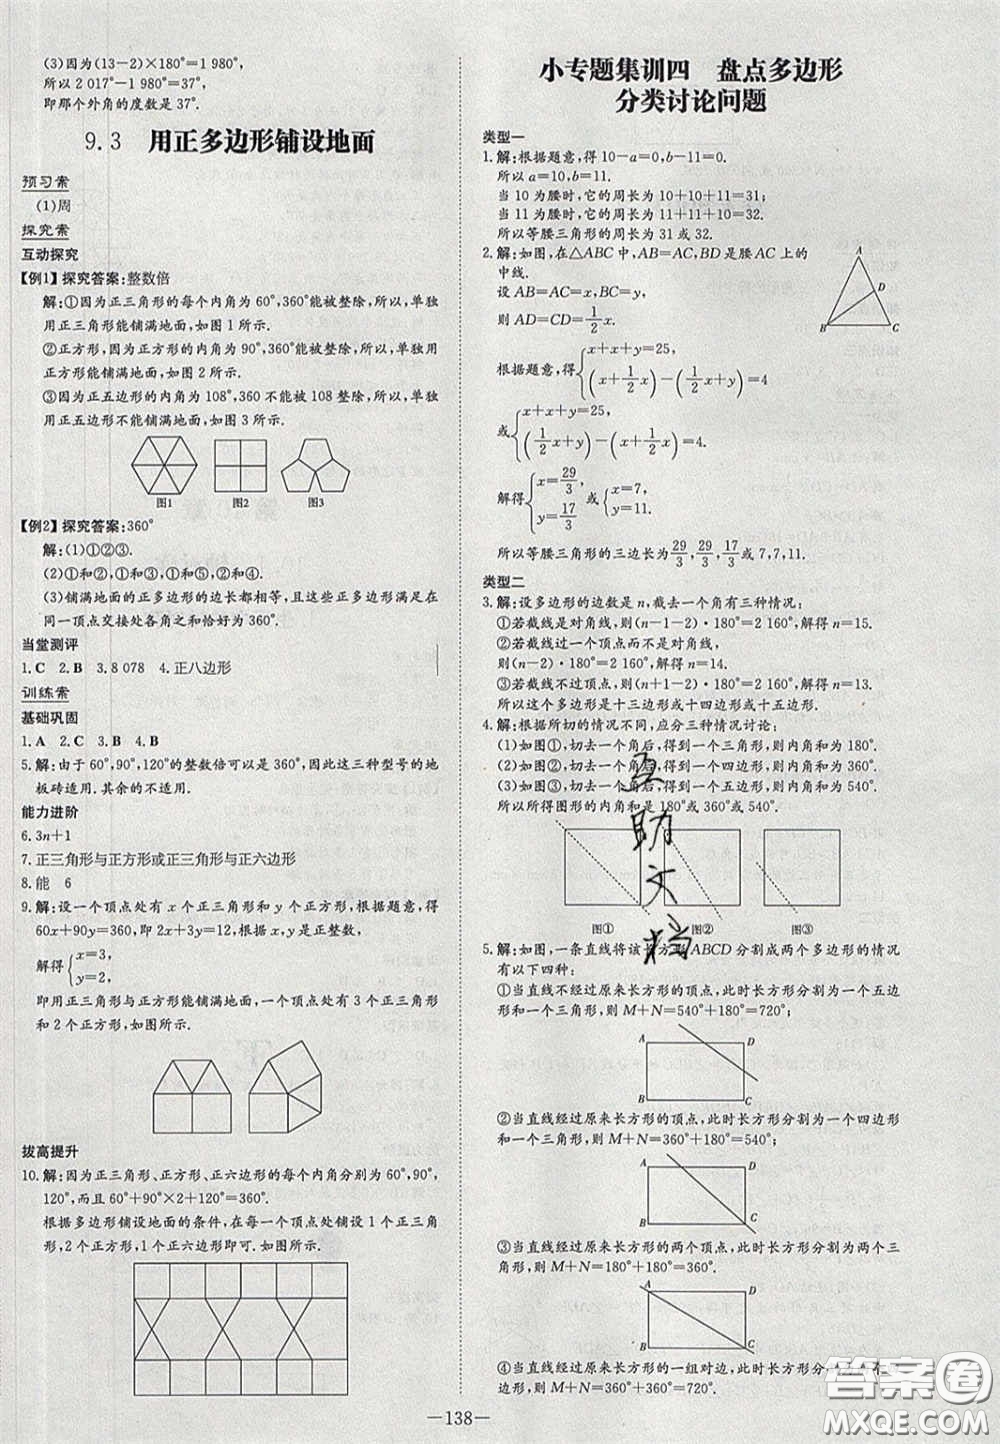 (3)因为(13-2)×180°=1 980°,
所以 2 017°-1 980°=37°.
即那个外角的度数是 37°.
9.3 用正多边形铺设地面
预习案
(1)周
探究案
互动探究
【例1】探究答案:整数倍
解:①因为正三角形的每个内角为 60°,360°能被整除,所以,单独
用正三角形能铺满地面,如图 1 所示.
②正方形,因为正方形的内角为 90°,360°能被整除,所以,单独用
正方形能铺满地面,如图 2 所示.
③因为正五边形的内角为 108°,360 不能被 108 整除,所以,单独
用正五边形不能铺满地面,如图 3 所示.
图1 图2 图3
【例2】探究答案:360°
解:(1)①②③.
(2)①和②,①和③,①和⑤,②和④.
(3)铺满地面的正多边形的边长都相等,且这些正多边形满足在
同一顶点交接处各角之和恰好为 360°.
当堂测评
1.C 2.B 3.8 078 4.正八边形
训练案
基础巩固
1.A 2.C 3.B 4.B
5.解:由于 60°,90°,120°的整数倍可以是 360°,因此这三种型号的地
板砖适用.其余的不适用.
能力进阶
6.3n+1
7.正三角形与正方形或正三角形与正六边形
8.能 6
9.解:设一个顶点处有 x 个正三角形和 y 个正方形,根据题意,得
60x+90y=360,即 2x+3y=12,因为 x,y 是正整数,
解得{x=3,
y=2,
即用正三角形与正方形能铺满地面,一个顶点处有 3 个正三角形
和 2 个正方形,如图所示.
拔高提升
10.解:因为正三角形、正方形、正六边形的每个内角分别为 60°,90°,
120°,而且 60°+90°×2+120°=360°.
根据多边形铺设地面的条件,在每一个顶点处铺设 1 个正三角
形,2 个正方形,1 个正六边形即可.如图所示.
小专题集训四 盘点多边形
分类讨论问题
类型一
1.解:根据题意,得 10-a=0,b-11=0.
所以 a=10,b=11.
当 10 为腰时,它的周长为 10+10+11=31;
当 11 为腰时,它的周长为 11+11+10=32.
所以等腰三角形的周长为 31 或 32.
2.解:如图,在△ABC 中,AB=AC,BD是腰AC上的
中线.
设 AB=AC=x,BC=y,
则 AD=CD=1/2x.
A
D
B C
根据题意,得{x+x+y=25,
(x+1/2x)-(y+1/2x)=4
或{x+x+y=25,
(1/2x+y)-(x+1/2x)=4.
解得{x=29/3
y=17/3 或{x=7,
y=11.
所以等腰三角形的三边长为29/3,29/3,17/3或 7,7,11.
类型二
3.解:设多边形的边数是 n,截去一个角有三种情况:
①若截线是对角线,则(n-1-2)·180°=2 160°,解得 n=15.
②若截线过一个顶点而不是对角线,
则(n-2)·180°=2 160°,解得 n=14.
③若截线不过顶点,则(n+1-2)·180°=2 160°,解得 n=13.
所以这个多边形是十三边形或十四边形或十五边形.
4.解:根据所切的情况不同,应分三种情况讨论:
(1)如图①,切去一个角后,得到一个三角形,则内角和为 180°.
(2)如图②,切去一个角后,得到一个四边形,则内角和为 360°.
(3)如图③,切去一个角后,得到一个五边形,则内角和为 540°.
所以所得图形的内角和是 180°或 360°或 540°.
图① 图② 图③
5.解:如图,一条直线将该长方形ABCD分割成两个多边形的情况
有以下四种:
①当直线不经过原来长方形的顶点,此时长方形分割为一个五边
形和一个三角形,则 M+N=540°+180°=720°;
A D
B C
②当直线经过原来长方形的顶点,此时长方形分割为一个四边形
和一个三角形,则 M+N=360°+180°=540°;
A D
B C
③当直线经过原来长方形的两个顶点,此时长方形分割为两个三
角形,则 M+N=180°+180°=360°;
A D
B C
④当直线经过原来长方形的一组对边,此时长方形分割为两个四边
形,则 M+N=360°+360°=720°.
—138—
互助文档
答案圈
MXQE.COM